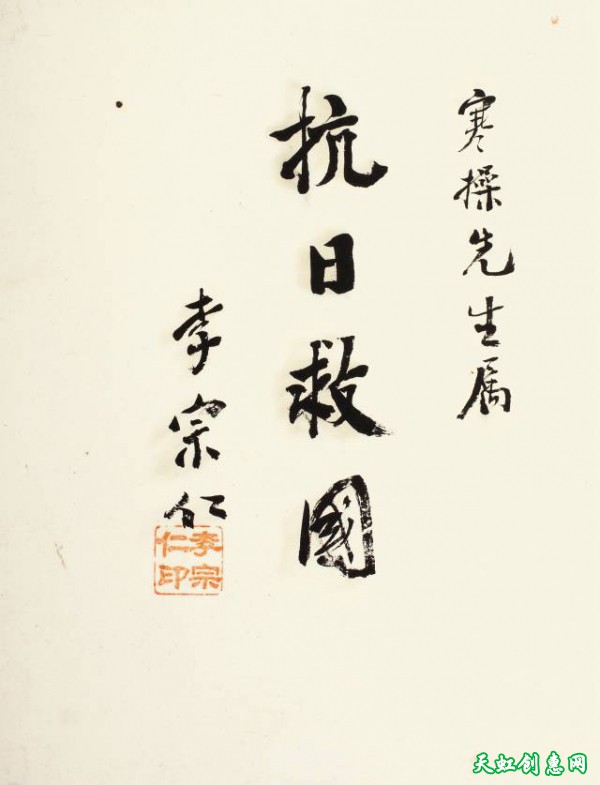 寒操先生属
抗日救國
李宗仁
李宗
仁印
天虹创惠网